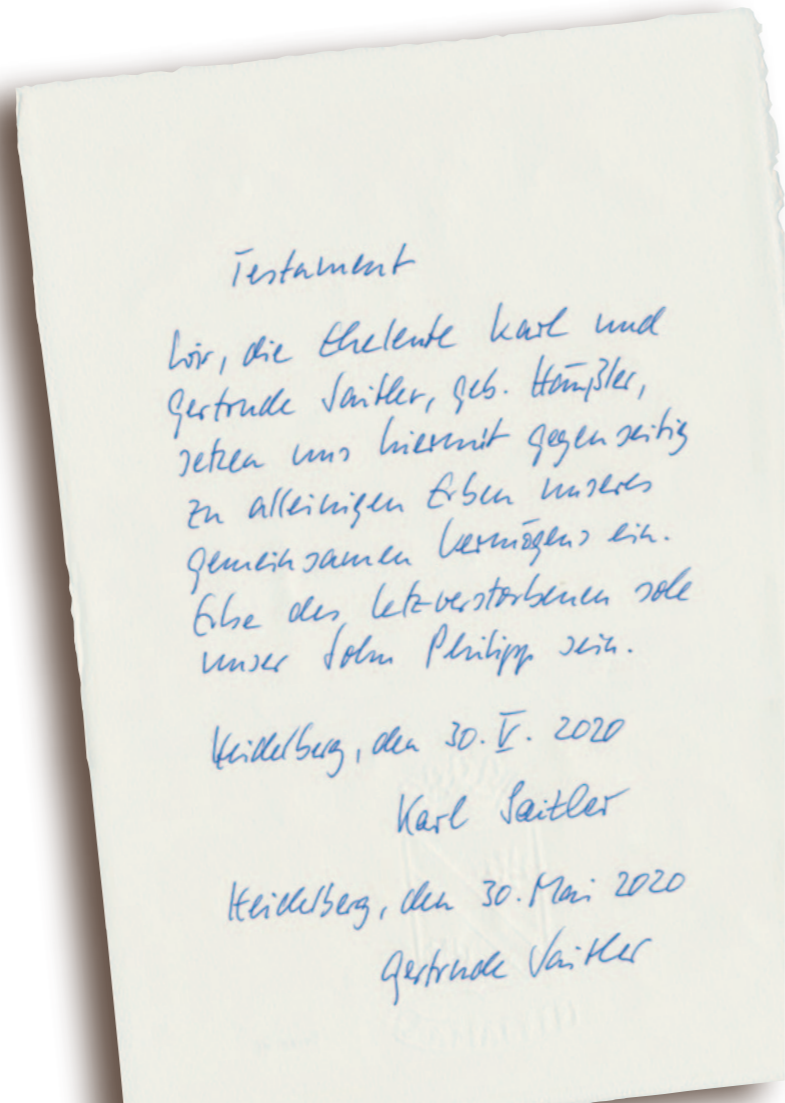 Testament
Wir, die Eheleute Karl und
Gertrude Saitler, geb. Häußler,
setzen uns hiermit gegenseitig
zu alleinigen Erben unseres
gemeinsamen Vermögens ein.
Erbe des Letztverstorbenen soll
unser Sohn Philipp sein.
Heidelberg, den 30. V. 2020
Karl Saitler
Heidelberg, den 30. Mai 2020
Gertrude Saitler